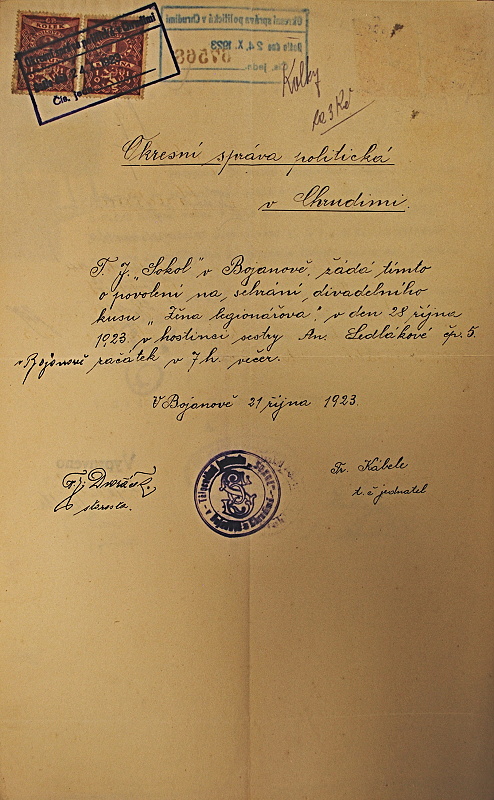 Okresní správa politická v Chrudimi
Došlo dne 24. X. 1923
Čís. jedn.
Kolky
za 3 Kč
Okresní správa politická
v Chrudimi.
T. J. „Sokol" v Bojanově, žádá tímto
o povolení na sehrání divadelního
kusu „Žena legionářova", v den 28 října
1923 v hostinci sestry An. Sedlákové čp. 5.
v Bojanově začátek v 7 h. večer.
V Bojanově 21 října 1923.
Fr. Kábele
t. č. jednatel
starosta.
Tělocvičná jednota „Sokol"